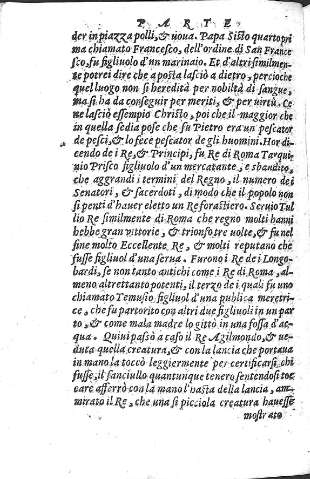 PARTE
der in piazza polli, & uoua. Papa Sisto quarto pri
ma chiamato Francesco, dell'ordine di San France
sco, fu figliuolo d'un marinaio. Et d'altri similmen-
te potrei dire che a posta lasciò a dietro, percioche
quel luogo non si heredità per nobiltà di sangue,
ma si ha da conseguir per meriti, & per uirtù. Ce
ne lasciò essempio Christo, poi che il maggior che
in quella sedia pose che fu Pietro era un pescator
de pesci, & lo fece pescator de gli huomini. Hor di
cendo de i Re, & Principi, fu Re di Roma Tarqui
nio Prisco figliuol d'un mercatante, e sbandito,
che aggrandì i termini del Regno, il numero de i
Senatori, & sacerdoti, di modo che il popolo non
si pentì d'hauer eletto un Re forastiero. Seruio Tul
lio Re similmente di Roma che regnò molti hanni
hebbe gran vittorie, & trionfò tre uolte, & fu nel
fine molto Eccellente Re, & molti reputano che
fusse figliuol d'una serua. Furono i Re de i Longo-
bardi, se non tanto antichi come i Re di Roma, al-
meno altrettanto potenti, il terzo de i quali fu uno
chiamato Temusio figliuol d'una publica meretri-
ce, che fu partorito con altri due figliuoli in un par
to, & come mala madre lo gittò in una fossa d'ac-
qua. Quiui passò a caso il Re Agilmondo, & ue-
duta quella creatura, & con la lancia che portaua
in mano la toccò leggiermente per certificarsi chi
fusse, il fanciullo quantunque tenero sentendosi toc
care afferrò con la mano l'hasta della lancia, am-
mirato il Re, che una sì picciola creatura hauesse
mostrato